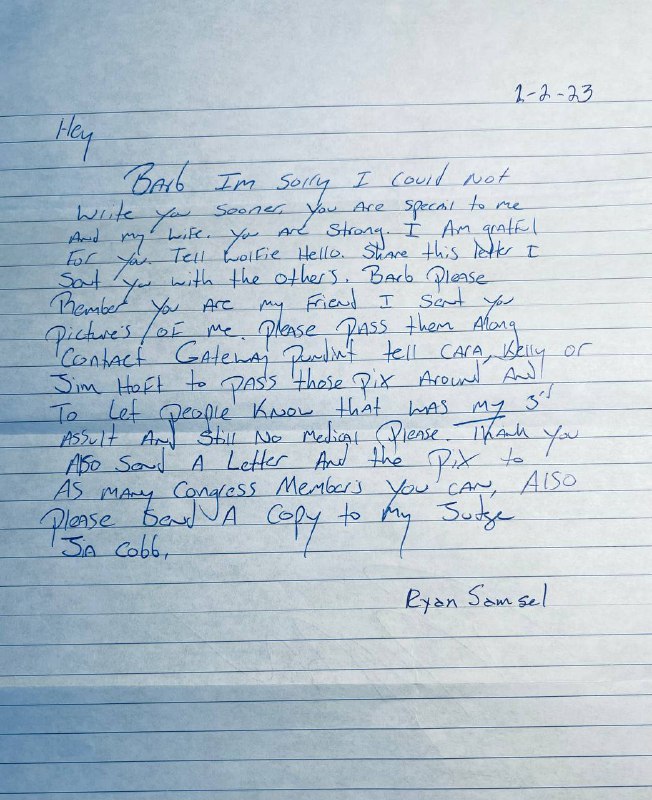 1-2-23
Hey
Barb Im Sorry I could Not
Write you Sooner. You Are special to me
And my wife. You Are Strong. I Am gratful
For you. Tell Wolfie Hello. Share this letter I
Sent you with the other's. Barb Please
Rember You Are my Friend I Sent you
Picture's OF me. Please PASS them Along
Contact Gateway Pundint tell CARA, Kelly or
Jim Hoft to PASS those PIX Around And
To Let People Know that WAS my 3rd
ASSult And Still No Medical Please. Thank you
Also Send A Letter And the Pix to
AS MANy Congress Member's You CAN, Also
Please Send A Copy to My Judge
JiA Cobb,
Ryan Samsel